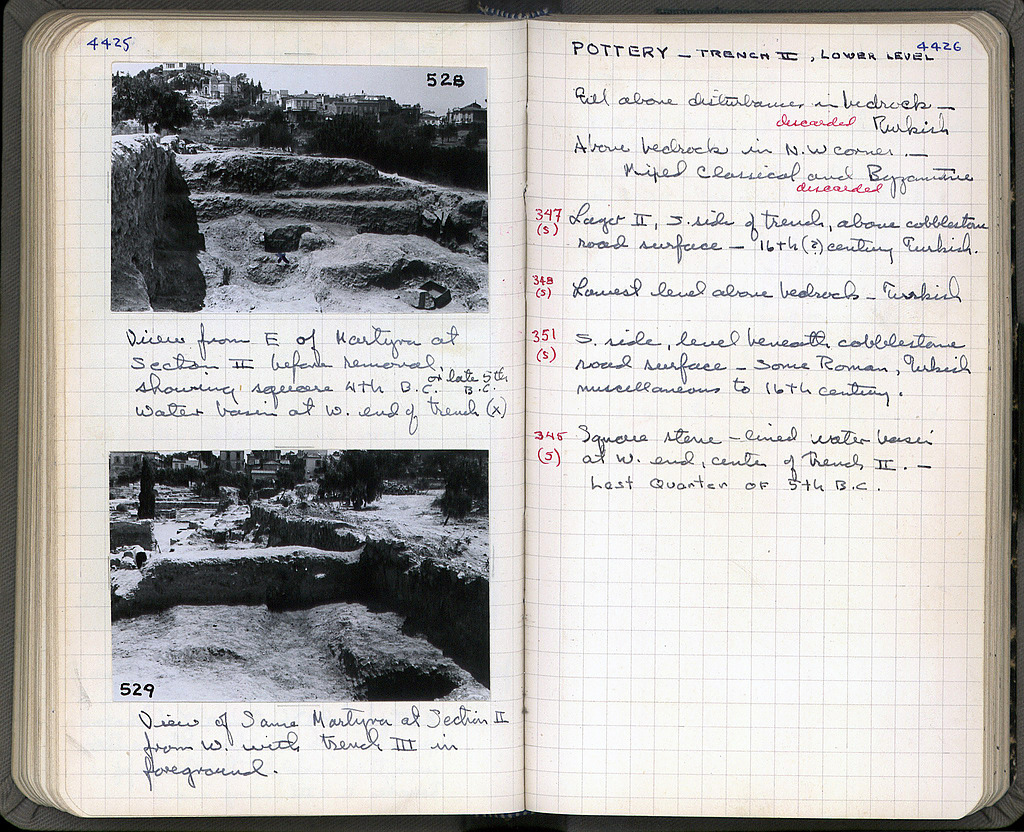 4425
528
View from E of Martyra at
Section II before removal,
showing square 4th B.C. or late 5th B.C.
Water basin at W. end of trench (x)
529
View of Same Martyra at Section II
from W. with trench III in
foreground.
4426
POTTERY – TRENCH II, LOWER LEVEL
Fill above disturbances in bedrock –
discarded Turkish
Above bedrock in N.W corner. –
Mixed Classical and Byzantine
discarded
347 (S) Layer II, S. side of trench, above cobblestone
road surface – 16th (?) century Turkish.
348 (S) Lowest level above bedrock – Turkish
351 (S) S. side, level beneath cobblestone
road surface – Some Roman, Turkish
miscellaneous to 16th century.
345 (S) Square stone-lined water basin
at W. end, center of trench II. –
Last Quarter OF 5th B.C.